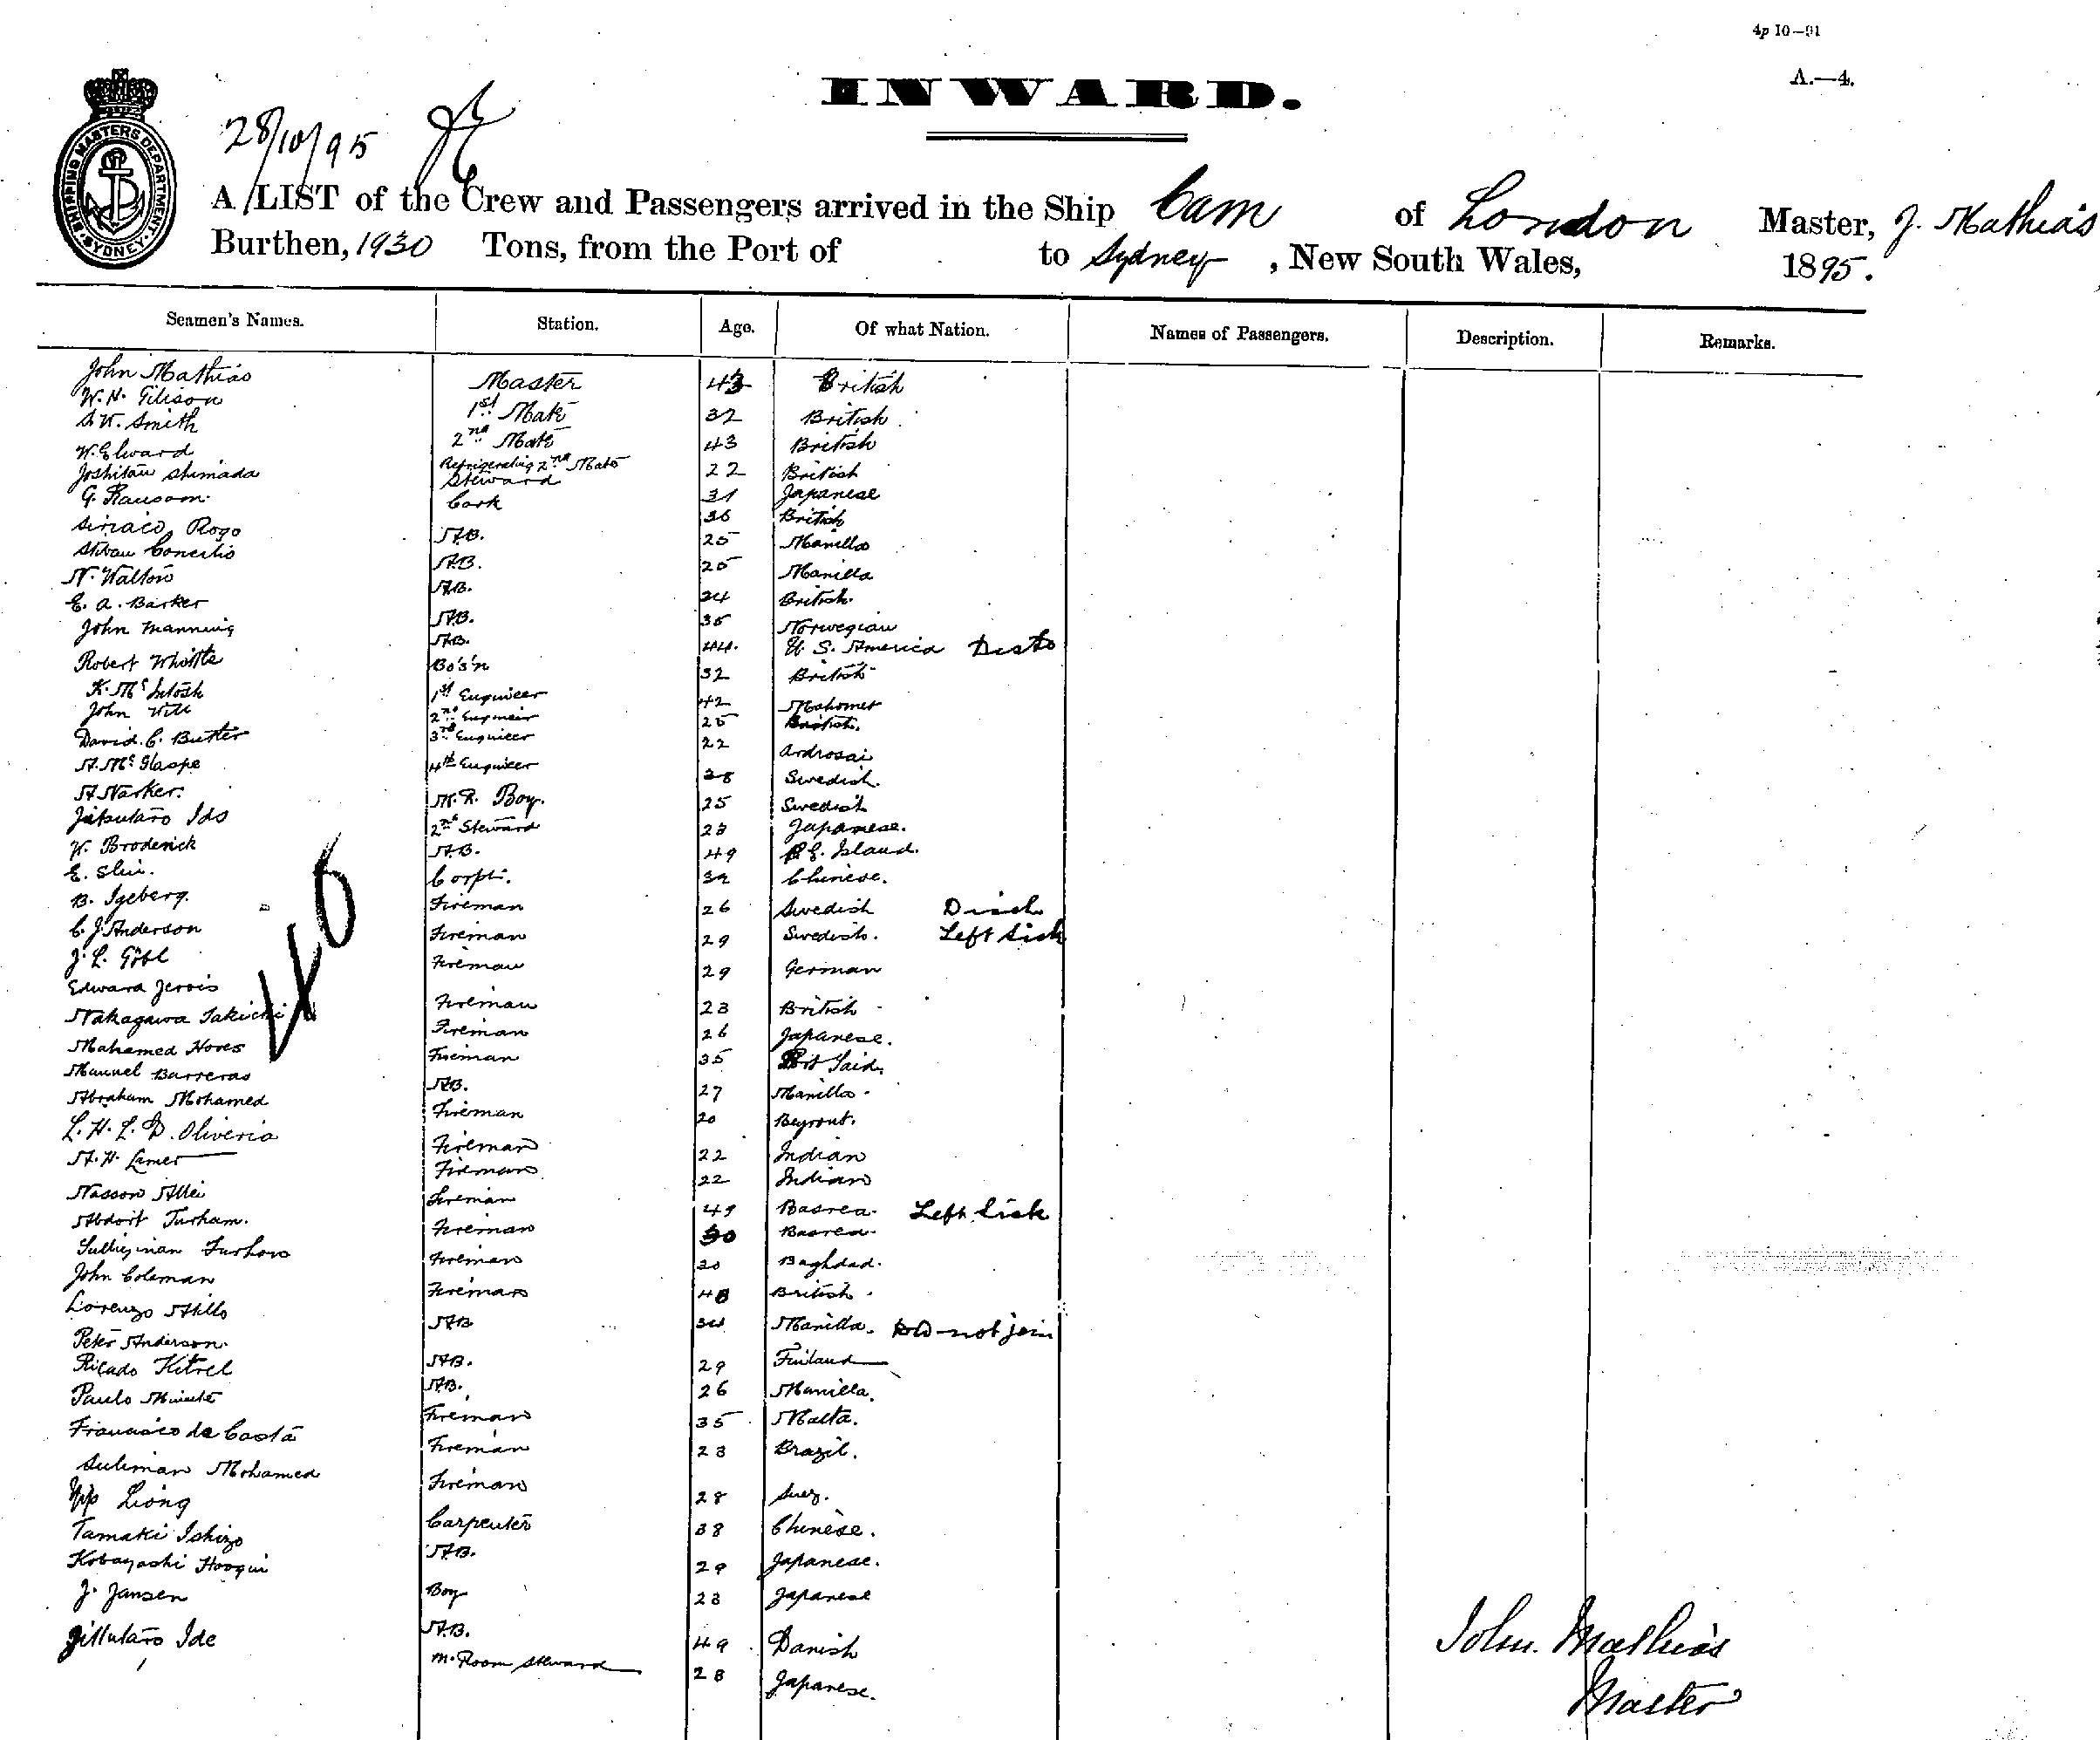 4p 10—91
A.—4.
INWARD.
SHIPPING MASTERS DEPARTMENT SYDNEY
28/10/95
A LIST of the Crew and Passengers arrived in the Ship Cam of London Master, J. Mathias
Burthen, 1930 Tons, from the Port of to Sydney, New South Wales, 1895.
Seamen's Names. Station. Age. Of what Nation. Names of Passengers. Description. Remarks.
John Mathias Master 43 British
W. H. Gilson 1st Mate 32 British
S. W. Smith 2nd Mate 43 British
W. Elward Refrigerating 2nd Mate 22 British
Joshitaw Shimada Steward 31 Japanese
G. Ransom. Cook 36 British
Siriaco Rogo A.B. 25 Manilla
Concilio A.B. 25 Manilla
N. Walton A.B. 24 British.
E. A. Barker A.B. 35 Norwegian
John Manning A.B. 44. U. S. America
Robert Whittle Bo's'n 32 British
K. McIntosh 1st Engineer 42
John Will 2nd Engineer 25 British.
David. C. Butler 3rd Engineer 22
A. Mc 4th Engineer 28 Swedish.
A Narker. M. R. Boy. 25 Swedish
Jitsutaro Ido 2nd Steward 23 Japanese.
W. Broderick A.B. 49 Island.
E. Shin. Carpt. 39 Chinese.
B. Igeberg. Fireman 26 Swedish Disch
C. J. Anderson Fireman 29 Swedish. Left Sick
J. L. Göbl Fireman 29 German
Edward Jervis Fireman 23 British
Nakagawa Takichi Fireman 26 Japanese.
Mahamed Fireman 35 Port Said.
Manuel Barreras A.B. 27 Manilla.
Abraham Mohamed Fireman 20 Beyrout.
L. H. L. D. Oliveria Fireman 22 Indian
A. H. Lamer Fireman 22 Indian
Nasson Allei Fireman 49 Basrea. Left Sick
Turham. Fireman 30 Basrea.
Fireman 20 Baghdad.
John Coleman Fireman 48 British.
Lorenzo Atillo A.B. 34 Manilla. Did not join
Peter Anderson. A.B. 29 Finland
Ricado Kitrel A.B. 26 Manilla.
Paulo Fireman 35 Malta.
Francisco de Costa Fireman 23 Brazil.
Suliman Mohamed Fireman 28 Suez.
Yip Liong Carpenter 38 Chinese.
Tamaki Ishizo A.B. 29 Japanese.
Kobayashi Boy 23 Japanese
J. Jansen A.B. 49 Danish
Jillutaro Ide M. Room Steward 28 Japanese.
46
John. Mathias
Master